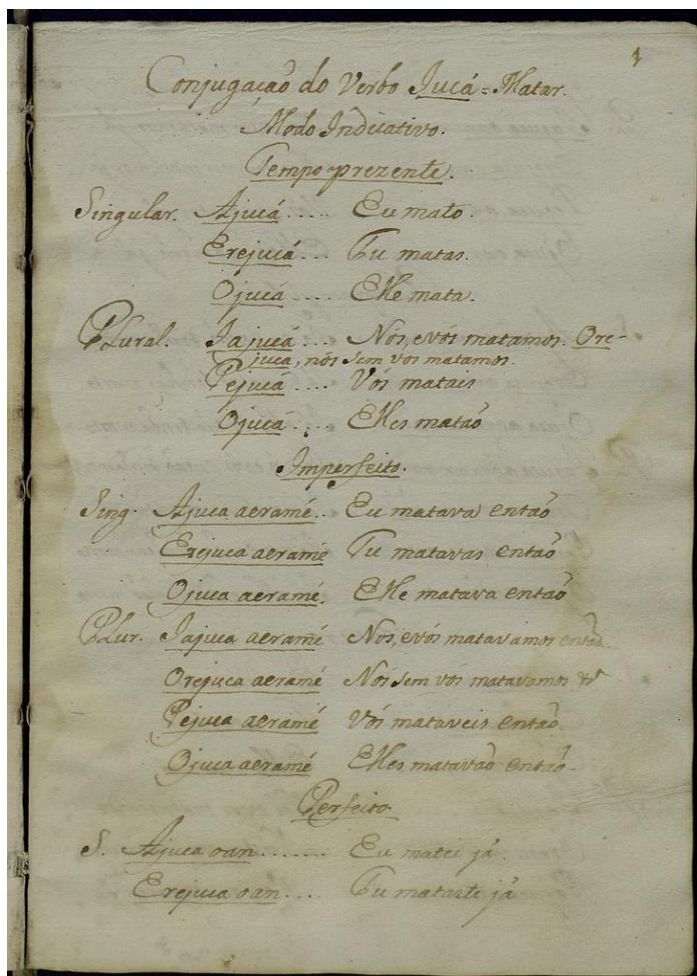 1
Conjugaçaõ do Verbo Jucá = Matar.
Modo Indicativo.
Tempo prezente.
Singular. Ajucá..... Eu mato.
Erejucá... Tu matas.
Ojucá.... Elle mata.
Plural. Jajucá... Nós, e vós matamos. Ore-
juca, nós sem vós matamos.
Pejucá.... Vós matais
Ojucá.... Elles mataõ
Imperfeito.
Sing. Ajuca aeramé.. Eu matava entaõ
Erejuca aeramé Tu matavas entaõ
Ojuca aeramé. Elle matava entaõ
Plur. Jajuca aeramé Nós, e vós matavamos entaõ.
Orejuca aeramé Nós sem vós matavamos &ª
Pejuca aeramé Vós mataveis entaõ.
Ojuca aeramé Elles matavaõ entaõ.
Perfeito.
S. Ajuca oan....... Eu matei já
Erejuca oan.... Tu mataste já